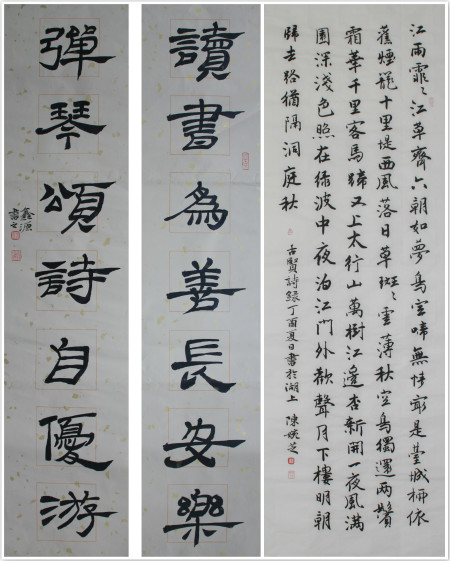 江雨霏〻江草齊六朝如夢鳥空啼無情最是臺城柳依
舊煙籠十里堤西風落日草斑〻雲薄秋空鳥獨還兩鬢
霜華千里客馬蹄又上太行山萬樹江邊杏新開一夜風滿
園深淺色照在綠波中夜泊江門外歡聲月下樓明朝
歸去路猶隔洞庭秋
古賢詩錄丁酉夏日書於湖上 陳芝
讀書為善長安樂
彈琴頌詩自優游
鑫源
書